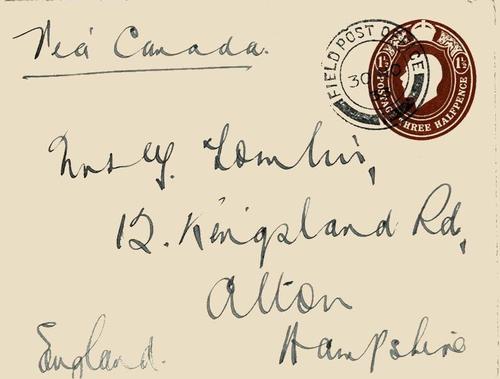 Via Canada.
FIELD POST OFFICE
30
1½ 1½
POSTAGE THREE HALFPENCE
Mrs Y. Tomlin,
12. Kingsland Rd,
Alton
Hampshire
England.